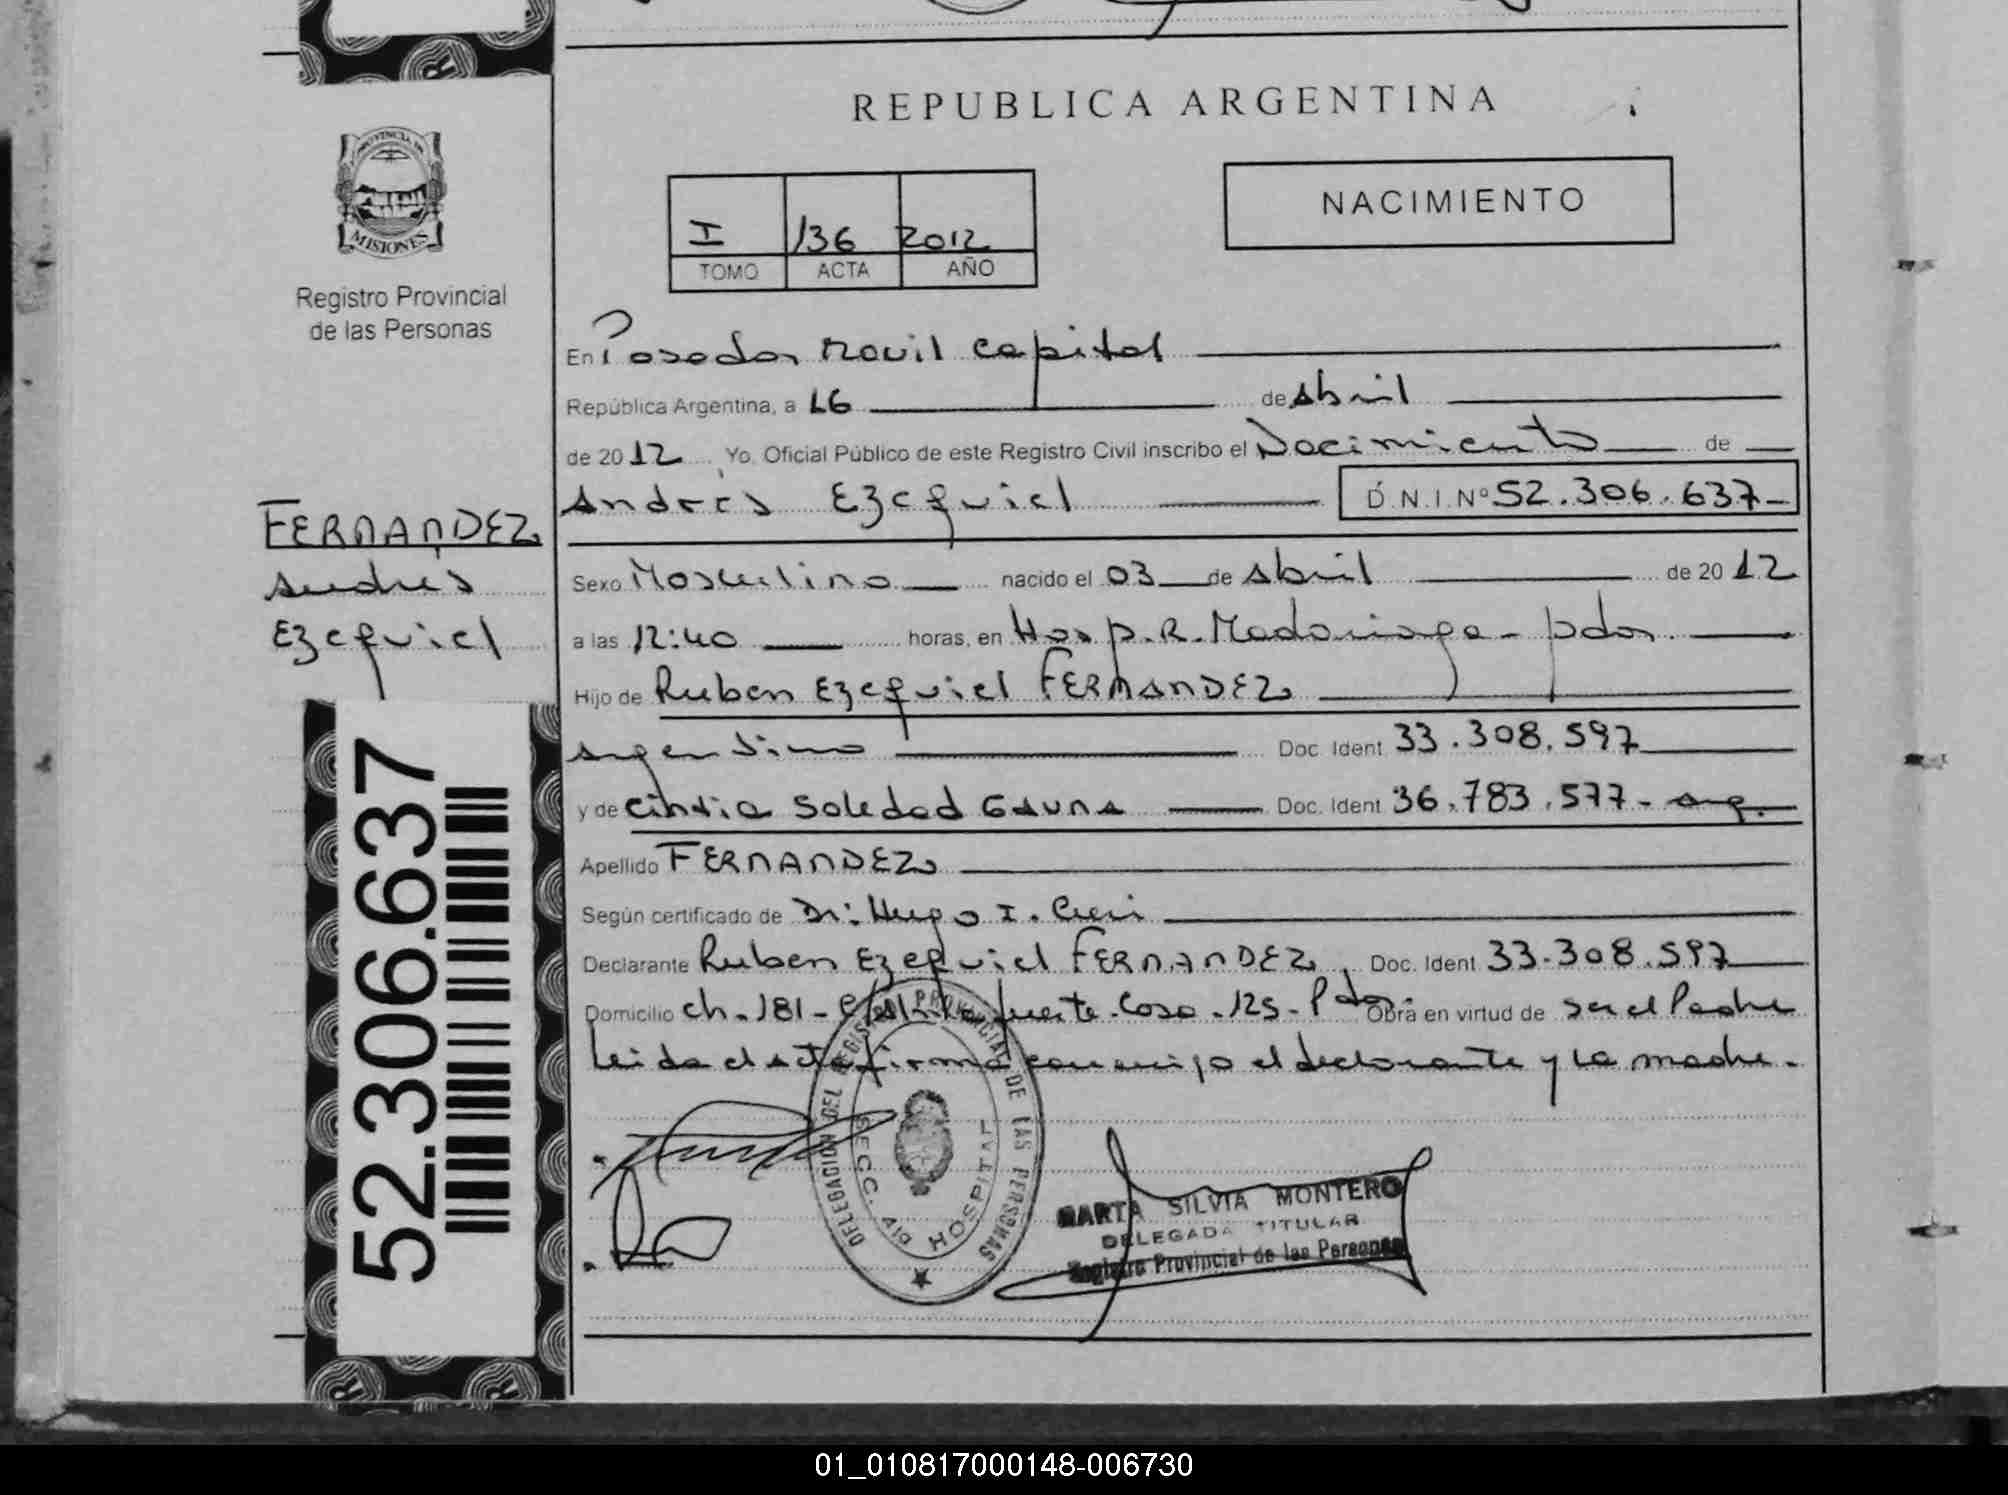 REPUBLICA ARGENTINA
PROVINCIA DE
MISIONES
Registro Provincial
de las Personas
I 136 2012
TOMO ACTA AÑO
NACIMIENTO
En Posadas Movil Capital
República Argentina, a 16 de Abril
de 2012 Yo, Oficial Público de este Registro Civil inscribo el Nacimiento de
Andrés Ezequiel D.N.I. Nº 52.306.637
FERNANDEZ
Andrés
Ezequiel
Sexo Masculino nacido el 03 de Abril de 2012
a las 12:40 horas, en Hosp. R. Madariaga - pdas.
Hijo de Ruben Ezequiel FERNANDEZ
argentino Doc. Ident. 33.308.597
y de Cintia Soledad GAUNA Doc. Ident. 36.783.577 - arg.
Apellido FERNANDEZ
Según certificado de Dr: Hugo I.
Declarante Ruben Ezequiel FERNANDEZ, Doc. Ident. 33.308.597
Domicilio ch. 181 - fuerte. Casa. 125 - Pdas Obra en virtud de ser el Padre
Leida el acta firma conmigo el declarante y la madre.
52.306.637
DELEGACION DEL REGISTRO PROVINCIAL DE LAS PERSONAS
SECC. HOSPITAL
MARTA SILVIA MONTERO
DELEGADA TITULAR
Registro Provincial de las Personas
01_010817000148-006730